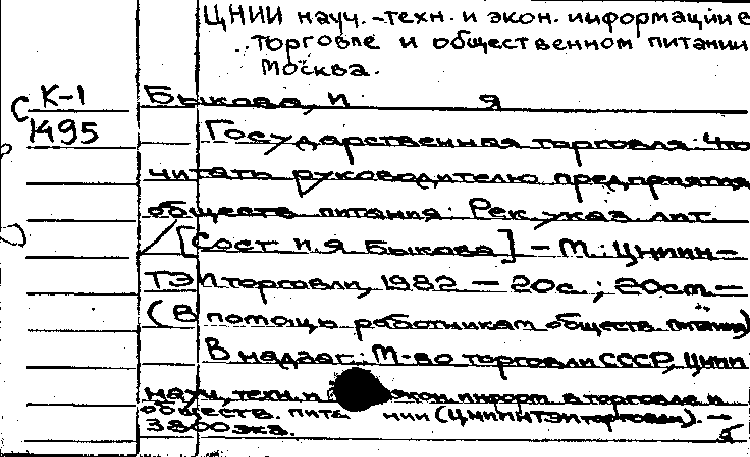 ЦНИИ науч.-техн. и экон. информации в
торговле и общественном питании
Москва.
С К-1
1495
Быкова, И Я
Государственная торговля: Что
читать руководителю предприятия
обществ питания: Рек указ лит.
/[Сост И Я Быкова] – М.: ЦНИИ-
ТЭИторговли, 1982 – 20с.; 20см.–
(В помощь работникам обществ. питания)
В надзаг: М-во торговли СССР, ЦНИИ
науч, техн. и экон. информ. в торговле и
обществ. пита нии (ЦНИИТЭИторговли). –
3800экз. я